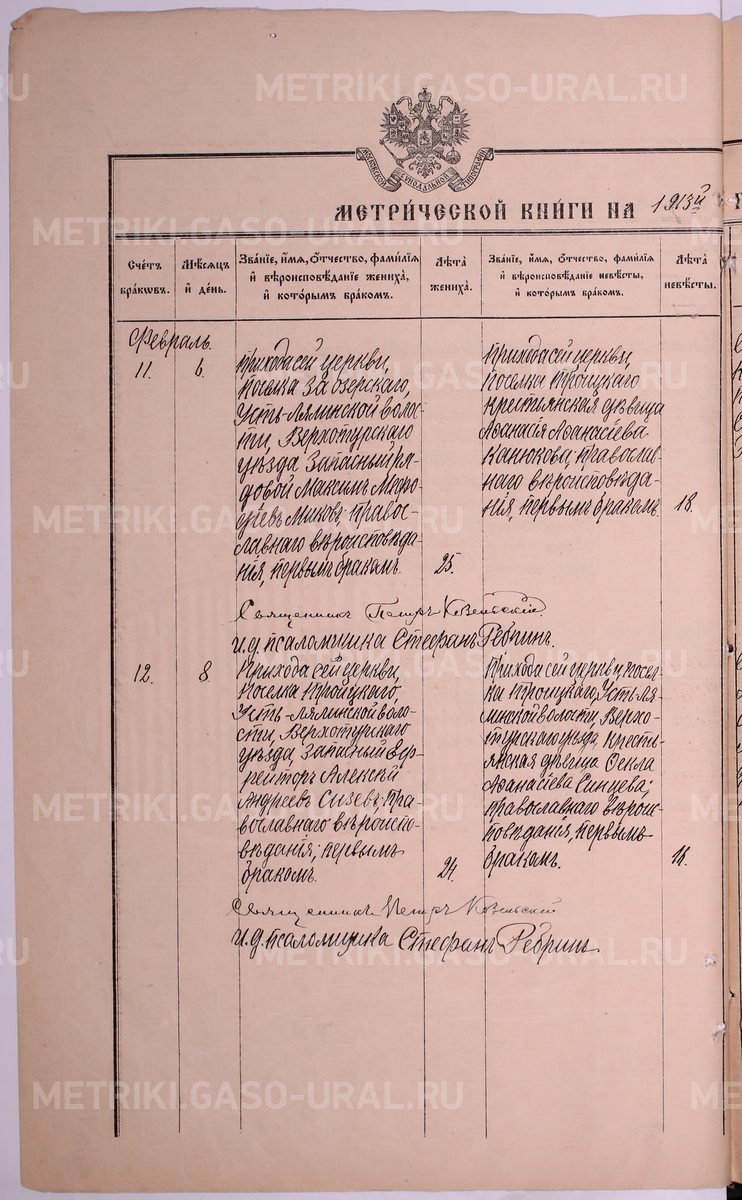 МОСКОВСКОЙ СѴНОДАЛЬНОЙ ТИПОГРАФІИ
МЕТРИ́ЧЕСКОЙ КНИ́ГИ НА 1913й
Сче́тъ бра́кωвъ.
Мѣ́сяцъ и҆ де́нь.
Зва́ніе, и҆́мя, ѻ҆́тчество, фами́лія
и҆ вѣроисповѣ́даніе жениха̀,
и҆ кото́рымъ бра́комъ.
Лѣ́та жениха̀.
Зва́ніе, и҆́мя, ѻ҆́тчество, фами́лія
и҆ вѣроисповѣ́даніе невѣ́сты,
и҆ кото́рымъ бра́комъ.
Лѣ́та невѣ́сты.
Февраль.
11.
6.
Прихода сей церкви,
поселка Заозерскаго,
Усть-Лялинской волос-
ти, Верхотурскаго
уѣзда запасный ря-
довой Максимъ
православнаго вѣроисповѣда-
нія, первымъ бракомъ.
25.
Прихода сей церкви,
поселка Троицкаго
крестьянская дѣвица
Аѳанасія Аѳанасіева
Канюкова, православ-
наго вѣроисповѣда-
нія, первымъ бракомъ.
18.
Священникъ Петръ
И.д. псаломщика Стефанъ Ребринъ.
12.
8
Прихода сей церкви,
поселка Троицкаго,
Усть-Лялинской воло-
сти, Верхотурскаго
уѣзда, запасный Еф-
рейторъ Алексѣй
Андреевъ Сизевъ, пра-
вославнаго вѣроиспо-
вѣданія, первымъ
бракомъ.
24.
Прихода сей церкви, посел-
ка Троицкаго, Усть-Ля-
линской волости, Верхо-
турскаго уѣзда, кресть-
янская дѣвица Ѳекла
Аѳанасіева Синцева,
православнаго вѣроис-
повѣданія, первымъ
бракомъ.
16.
Священникъ Петръ
И.д. псаломщика Стефанъ Ребринъ
METRIKI.GASO-URAL.RU